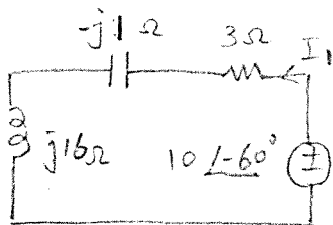 -j1 Ω
3Ω
I₁
j16Ω
10 ∠-60°